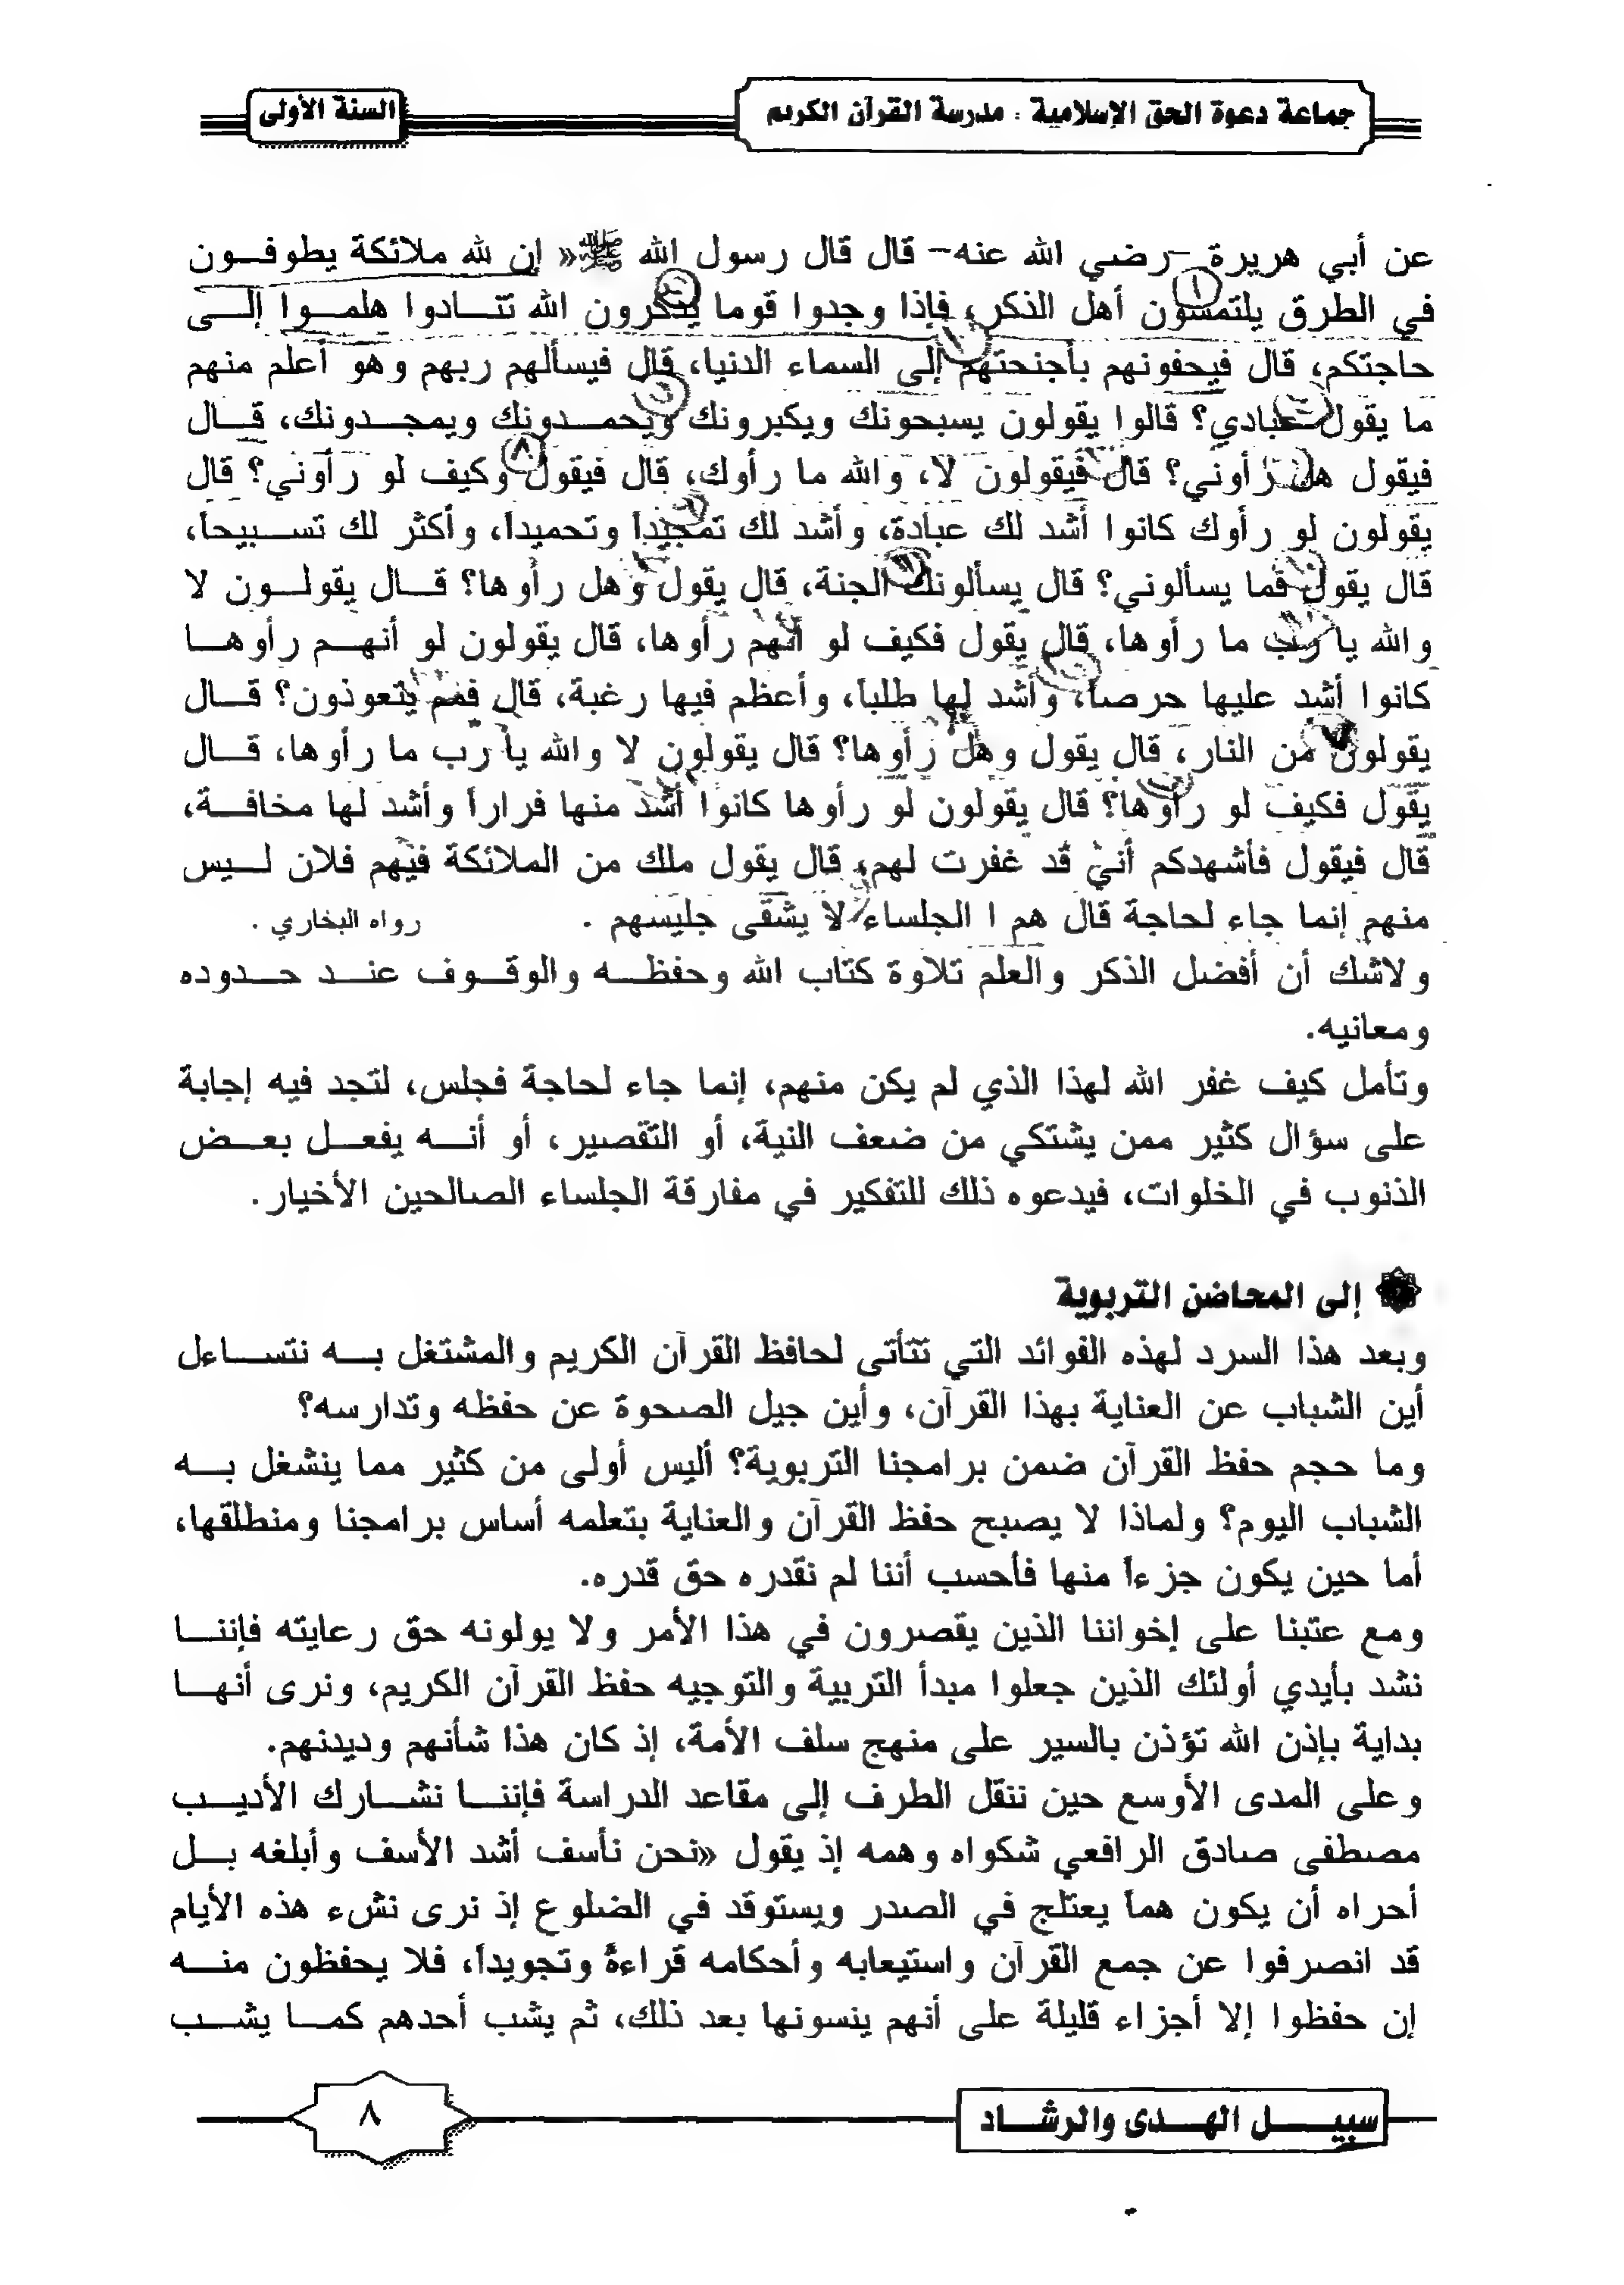 جماعة دعوة الحق الإسلامية : مدرسة القرآن الكريم
السنة الأولى
عن أبي هريرة -رضي الله عنه- قال قال رسول الله ﷺ « إن لله ملائكة يطوفـون
في الطرق يلتمسون أهل الذكر، فإذا وجدوا قوما يذكرون الله تنـادوا هلمـوا إلـى
حاجتكم، قال فيحفونهم بأجنحتهم إلى السماء الدنيا، قال فيسألهم ربهم وهو أعلم منهم
ما يقول عبادي؟ قالوا يقولون يسبحونك ويكبرونك ويحمـدونك ويمجـدونك، قـال
فيقول هل رأوني؟ قال فيقولون لا، والله ما رأوك، قال فيقول وكيف لو رأوني؟ قال
يقولون لو رأوك كانوا أشد لك عبادة، وأشد لك تمجيداً وتحميداً، وأكثر لك تسـبيحاً،
قال يقول فما يسألوني؟ قال يسألونك الجنة، قال يقول وهل رأوها؟ قـال يقولـون لا
والله يا رب ما رأوها، قال يقول فكيف لو أنهم رأوها، قال يقولون لو أنهـم رأوهـا
كانوا أشد عليها حرصاً، وأشد لها طلباً، وأعظم فيها رغبة، قال فمم يتعوذون؟ قـال
يقولون من النار، قال يقول وهل رأوها؟ قال يقولون لا والله يا رب ما رأوها، قـال
يقول فكيف لو رأوها؟ قال يقولون لو رأوها كانوا أشد منها فراراً وأشد لها مخافـة،
قال فيقول فأشهدكم أني قد غفرت لهم، قال يقول ملك من الملائكة فيهم فلان لـيس
منهم إنما جاء لحاجة قال هم ا الجلساء لا يشقى جليسهم . رواه البخاري .
ولاشك أن أفضل الذكر والعلم تلاوة كتاب الله وحفظـه والوقـوف عنـد حـدوده
ومعانيه.
وتأمل كيف غفر الله لهذا الذي لم يكن منهم، إنما جاء لحاجة فجلس، لتجد فيه إجابة
على سؤال كثير ممن يشتكي من ضعف النية، أو التقصير، أو أنـه يفعـل بعـض
الذنوب في الخلوات، فيدعوه ذلك للتفكير في مفارقة الجلساء الصالحين الأخيار.
إلى المحاضن التربوية
وبعد هذا السرد لهذه الفوائد التي تتأتى لحافظ القرآن الكريم والمشتغل بـه نتسـاءل
أين الشباب عن العناية بهذا القرآن، وأين جيل الصحوة عن حفظه وتدارسه؟
وما حجم حفظ القرآن ضمن برامجنا التربوية؟ أليس أولى من كثير مما ينشغل بـه
الشباب اليوم؟ ولماذا لا يصبح حفظ القرآن والعناية بتعلمه أساس برامجنا ومنطلقها،
أما حين يكون جزءاً منها فأحسب أننا لم نقدره حق قدره.
ومع عتبنا على إخواننا الذين يقصرون في هذا الأمر ولا يولونه حق رعايته فإننـا
نشد بأيدي أولئك الذين جعلوا مبدأ التربية والتوجيه حفظ القرآن الكريم، ونرى أنهـا
بداية بإذن الله تؤذن بالسير على منهج سلف الأمة، إذ كان هذا شأنهم وديدنهم.
وعلى المدى الأوسع حين ننقل الطرف إلى مقاعد الدراسة فإننـا نشـارك الأديـب
مصطفى صادق الرافعي شكواه وهمه إذ يقول «نحن نأسف أشد الأسف وأبلغه بـل
أحراه أن يكون هماً يعتلج في الصدر ويستوقد في الضلوع إذ نرى نشء هذه الأيام
قد انصرفوا عن جمع القرآن واستيعابه وأحكامه قراءةً وتجويداً، فلا يحفظون منـه
إن حفظوا إلا أجزاء قليلة على أنهم ينسونها بعد ذلك، ثم يشب أحدهم كمـا يشـب
سبيـل الهـدى والرشـاد
٨